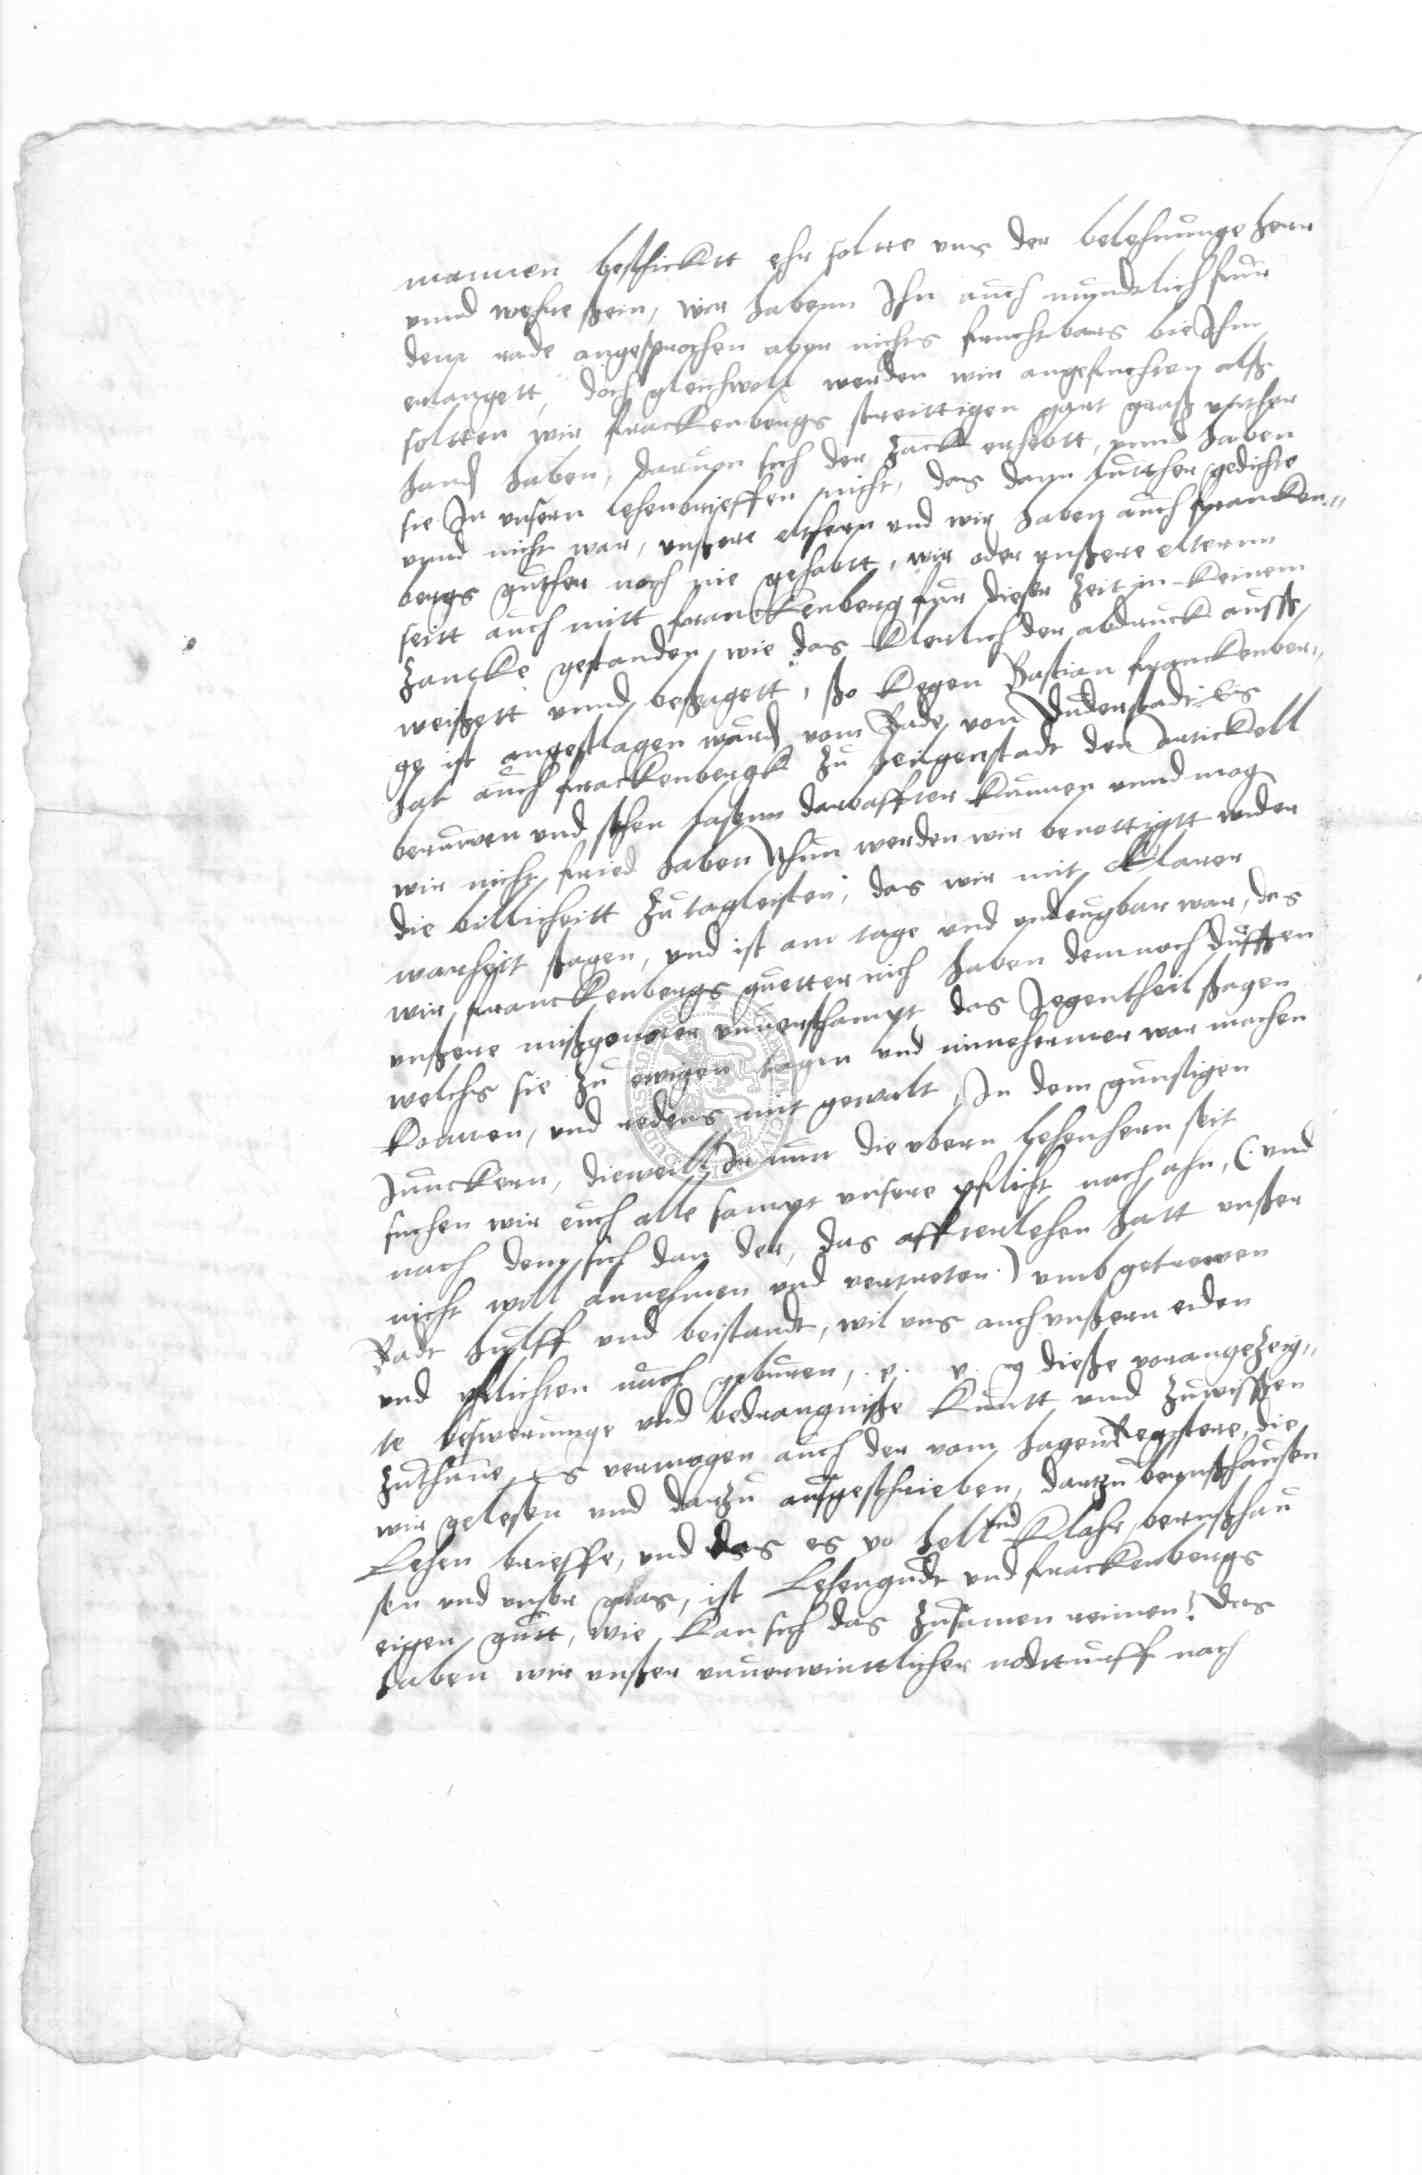 mannen beschicktt ehr soltte uns der belehnunge herr
unnd wehre sein, wir habenn Ihn auch mundtlich fuur
dem rade angesprochen aber nichts fruchtbars bie Ihm
erlangett, doch gleichwoll werden wir angefochten alß
soltten wir franckenbergs streittigen part guetter
handt haben, darumb sich der Zanck erhebtt, unnd haben
sie In unsern lehenbrieffen nicht, das dann lutther gedichte
unnd nicht war, unßere eltternn und wir haben auch francken-
bergs gutther noch nie gehabtt, wir oder unßere elternn
seitt auch mitt franckenberg fuur dieser Zeit in keinem
Zancke gestanden, wie das klerlich der abdruck auß
weißett unnd besagett, ßo kegen Bastian franckenber-
ge ist angeschlagen wurd vom Rade von Duderstadt Es
hat auch franckenbergk zu heiligenstadt den artickell
beruwen und stehen laßenn darafftter kunnen unnd mog
wir nicht fried haben Nhun werden wir benottigtt widder
die billicheitt zu tagleisten, das wir mit klarer
warheitt sagen, und ist am tage und unleugbar war, das
wir franckenbergs guetter nich haben dennoch duffen
unßere mißgonner unverschampt das Jegentheil sagen
welchs sie zu ewigen tagen und nimmehermer war machen
konnen, und redens mit gewalt, In dem gunstigen
Junckern, dieweill Ir nun die obern lehenhern seit
suchen wir euch alle sampt unsere pflicht nach ahn, (: und
nach dem sich dan der, das afftterlehen hatt unßer
nicht will annehmen und vertreten :) umb getrewen
Radt hulff und beistandt, wil uns auch unßern eiden
und pflichten nach geburen, e. v. g dieße vorangezeig-
te beswerunge und bedrangniße kuntt und zuwissen
zuthune, Es vermogen auch der vom hagen Registere, die
wir gelesen und darzu außgeschrieben, dartzu bernßhausen
Lehen brieffe, und das es so hell und klahr, bernßhau
sen und unser gras, ist Lehengudt und franckenbergs
eigen gutt, wie kan sich das zusamen reimen? Das
haben wir unßer unvermeittlicher notturfft nach